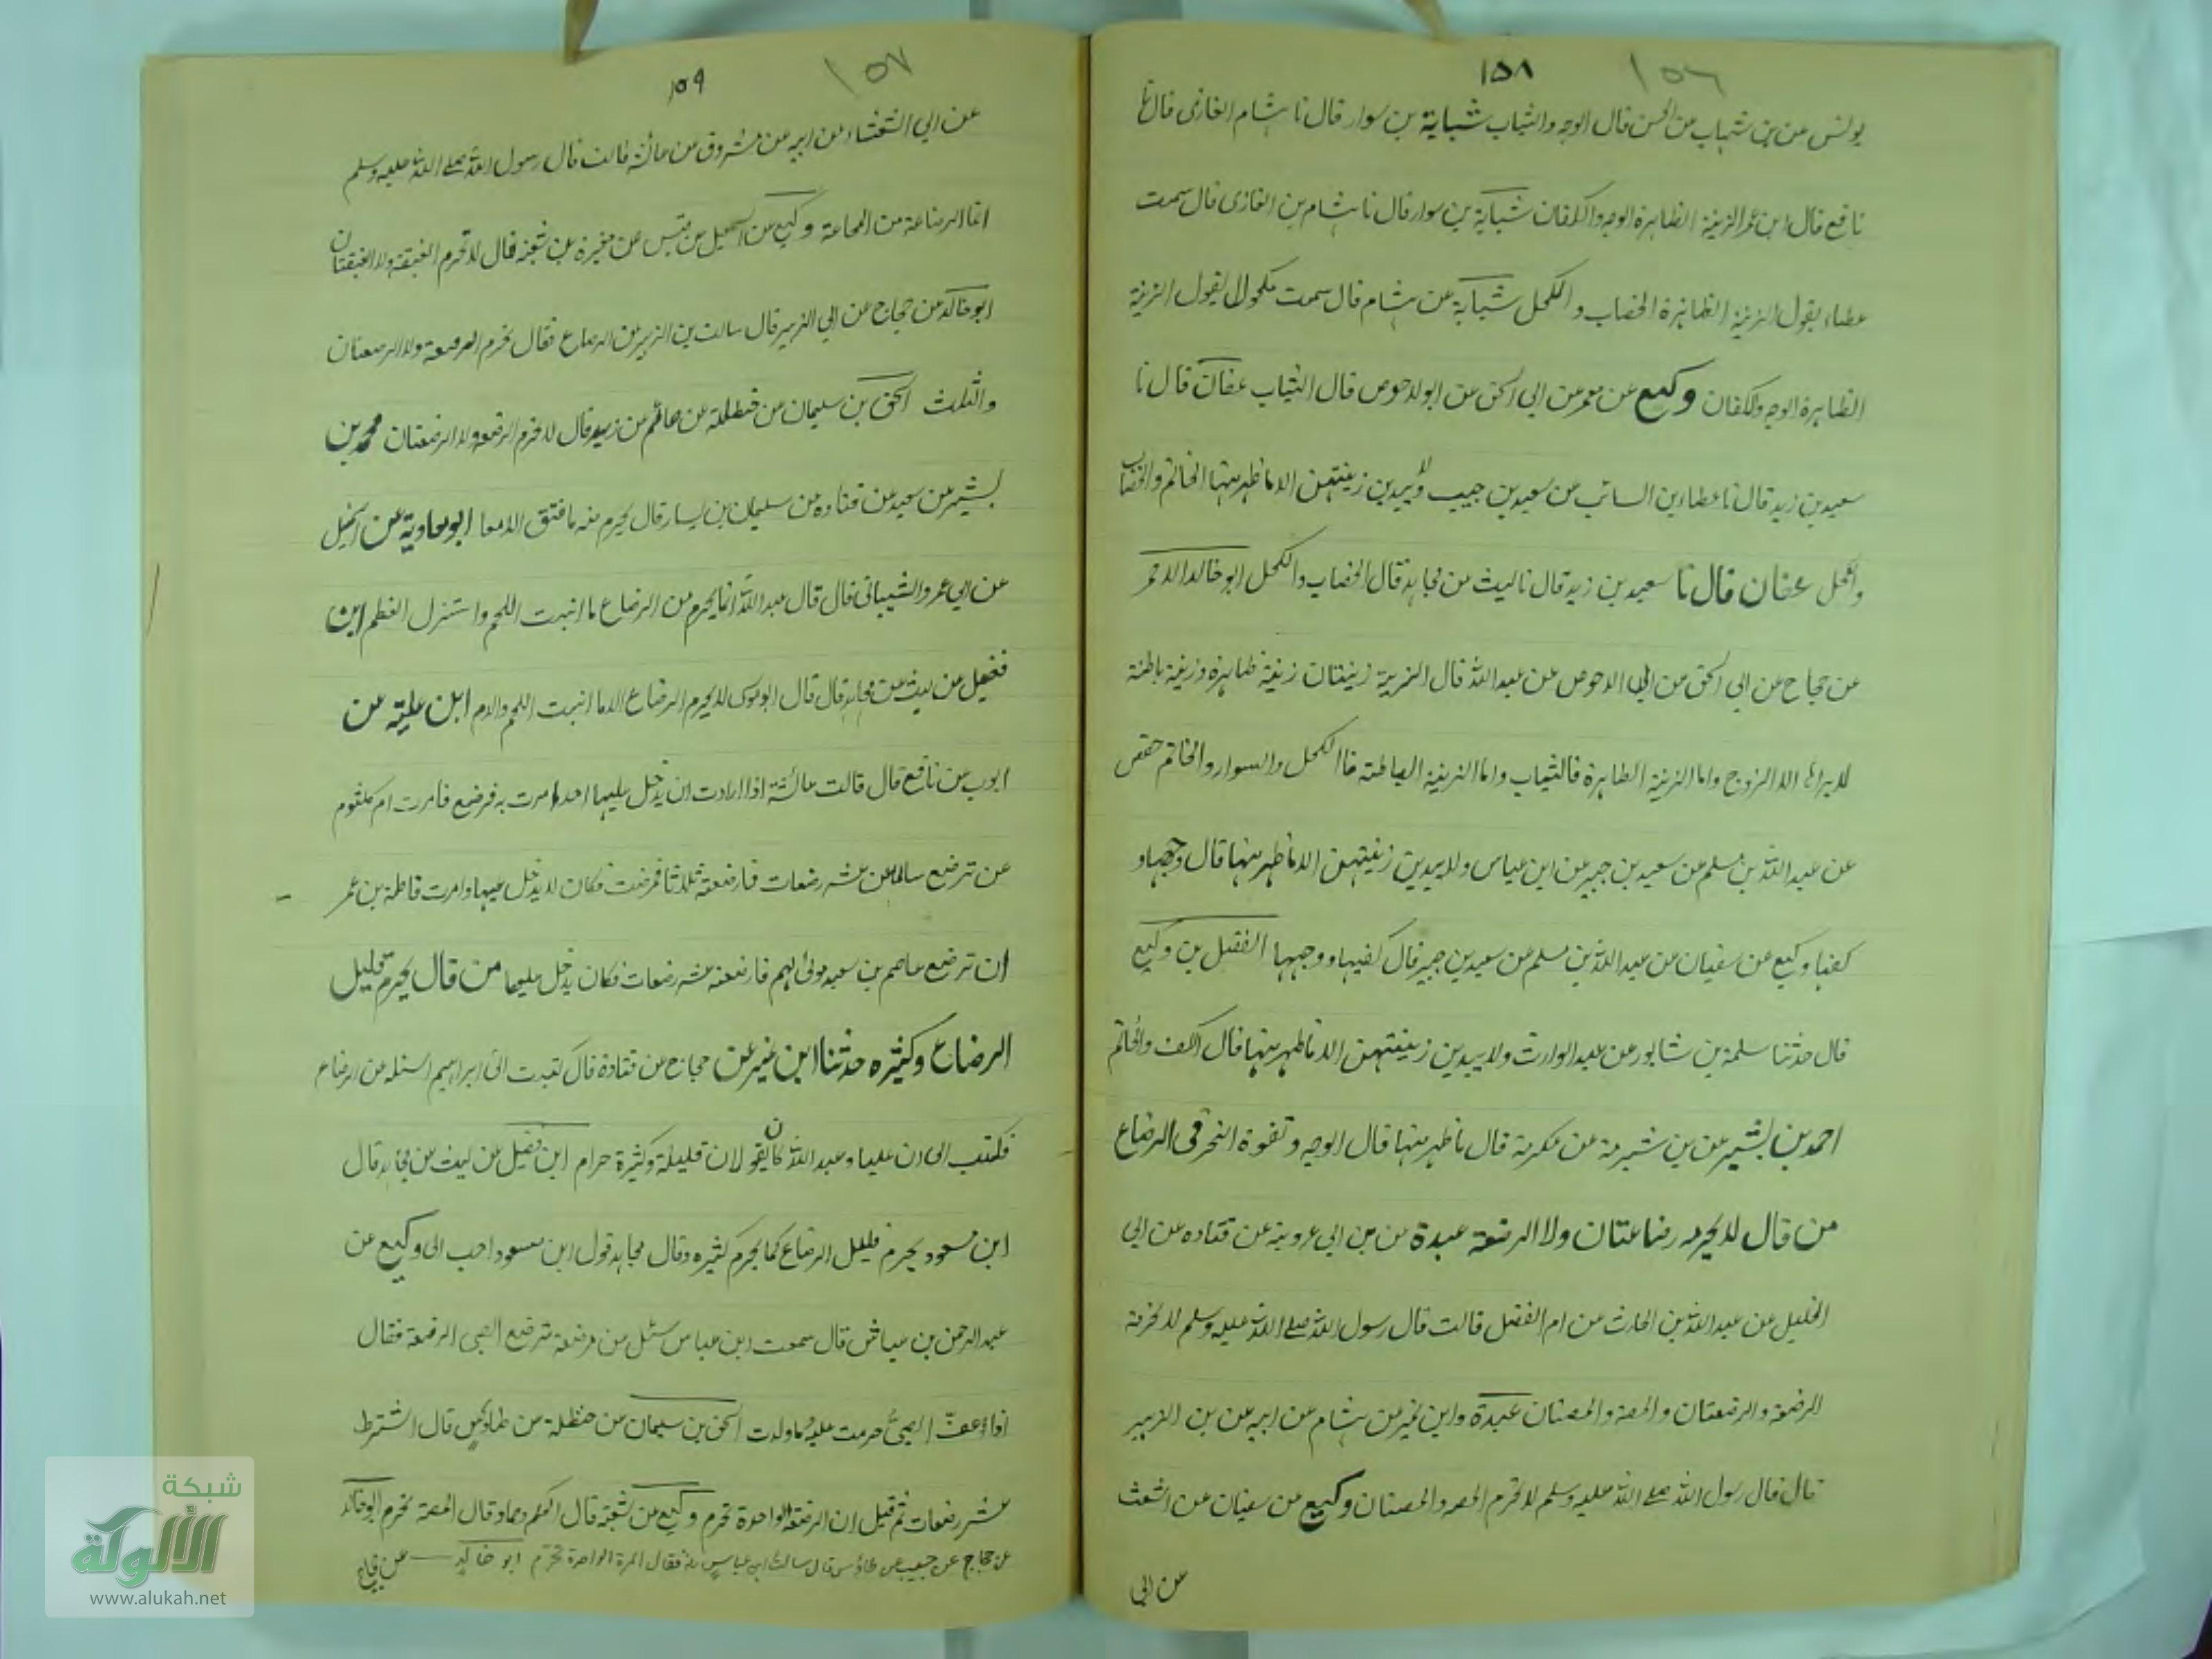 ١٥٨ ١٥٦
يونس عن بن شهاب عن الحسن قال الوجه والثياب شبابة بن سوار قال نا هشام الغازى قال نا
نافع قال ابن عمر الزينة الظاهرة الوجه والكفان شبابة بن سوار قال نا هشام بن الغازى قال سمعت
عطاء يقول الزينة الظاهرة الخضاب و الكحل شبابة عن هشام قال سمعت مكحولا يقول الزينة
الظاهرة الوجه والكفان وكيع عن معمر عن ابى اسحق عن ابو الاحوص قال الثياب عفان قال نا
سعيد بن زيد قال نا عطاء بن السائب عن سعيد بن جبير ولا يبدين زينتهن الا ما ظهر منها الخاتم والخضاب
والكحل عفان قال نا سعيد بن زيد قال نا ليث عن مجاهد قال الخضاب والكحل ابو خالد الاحمر
عن حجاج عن ابى اسحق عن ابى الاحوص عن عبد الله قال الزينة زينتان زينة ظاهرة وزينة باطنة
لا يراها الا الزوج واما الزينة الظاهرة فالثياب واما الزينة الباطنة فالكحل والسوار والخاتم حفص
عن عبد الله بن مسلم عن سعيد بن جبير عن ابن عباس ولا يبدين زينتهن الا ما ظهر منها قال وجهها و
كفيها وكيع عن سفيان عن عبد الله بن مسلم عن سعيد بن جبير قال كفيها ووجهها الفضل بن وكيع
قال حدثنا سلمة بن شابور عن عبد الوارث ولا يبدين زينتهن الا ما ظهر منها قال الكف والخاتم
احمد بن بشير عن بن شبرمة عن عكرمة قال ما ظهر منها قال الوجه و ثغرة النحر فى الرضاع
من قال لا يحرم رضاعتان ولا الرضعة عبدة عن بن ابى عروبة عن قتاده عن ابى
الخليل عن عبد الله بن الحارث عن ام الفضل قالت قال رسول الله صلے الله عليه وسلم لا تحرمة
الرضعة والرضعتان والمصة والمصتان عبدة وابن نمير عن هشام عن ابيه عن بن الزبير
قال قال رسول الله صلے الله عليه وسلم لا تحرم المصه والمصتان وكيع عن سفيان عن اشعث
عن ابى
١٥٩ ١٥٧
عن ابى الشعثاء عن ابيه عن مسروق عن عائشة قالت قال رسول الله صلے الله عليه وسلم
انما الرضاعة من المجاعة وكيع عن اسمعيل عن قيس عن مغيرة بن شعبة قال لا تحرم الغيقة ولا الغيقتان
ابو خالد عن حجاج عن ابى الزبير قال سالت بن الزبير عن الرضاع فقال تحرم الرضعة ولا الرضعتان
والثلث اسحق بن سليمان عن حنظلة عن سالم عن زيد قال لا تحرم الرضعه ولا الرضعتان محمد بن
بشير عن سعيد عن قتاده عن سليمان بن يسار قال يحرم منه ما فتق الامعا ابو معاوية عن اسمعيل
عن ابى عمرو الشيبانى قال قال عبد الله انما يحرم من الرضاع ما انبت اللحم وانشز العظم ابن
فضيل عن ليث عن مجاهد قال قال ابو موسى لا يحرم الرضاع الا ما انبت اللحم والدم ابن علية عن
ايوب عن نافع قال قالت عائشة اذا ارادت ان يدخل عليها احد امرت به فرضع فامرت ام كلثوم
عن ترضع سالما عشر رضعات فارضعته ثلاثا فمرضت فكان لا يدخل عليها وامرت فاطمة بن عمر
ان ترضع عاصم بن سعيد مولى لهم فارضعته عشر رضعات فكان يدخل عليها من قال يحرم قليل
الرضاع وكثيره حدثنا ابن نمير عن حجاج عن قتادة قال كتبت الى ابراهيم اسئله عن الرضاع
فكتب الى ان عليا و عبد الله كانا يقولان قليله وكثيرة حرام ابن فضيل عن ليث عن مجاهد قال
ابن مسعود يحرم قليل الرضاع كما يحرم كثيره وقال مجاهد قول ابن مسعود احب الى وكيع عن
عبد الرحمن بن عباش قال سمعت ابن عباس سئل عن مرضعة ترضع الصبى الرضعة فقال
اذا عق الصبى حرمت عليه وما ولدت اسحق بن سليمان عن حنظلة عن طاوس قال اشترط
عشر رضعات ثم قيل ان الرضعة الواحدة تحرم وكيع عن شعبة قال الحكم وحماد قال المصة تحرم ابو خالد
عن حجاج عن حبيب عن طاؤس قال سالت ابن عباس فقال المرة الواحدة تحرم ابو خالد
شبكة
الألوكة
www.alukah.net